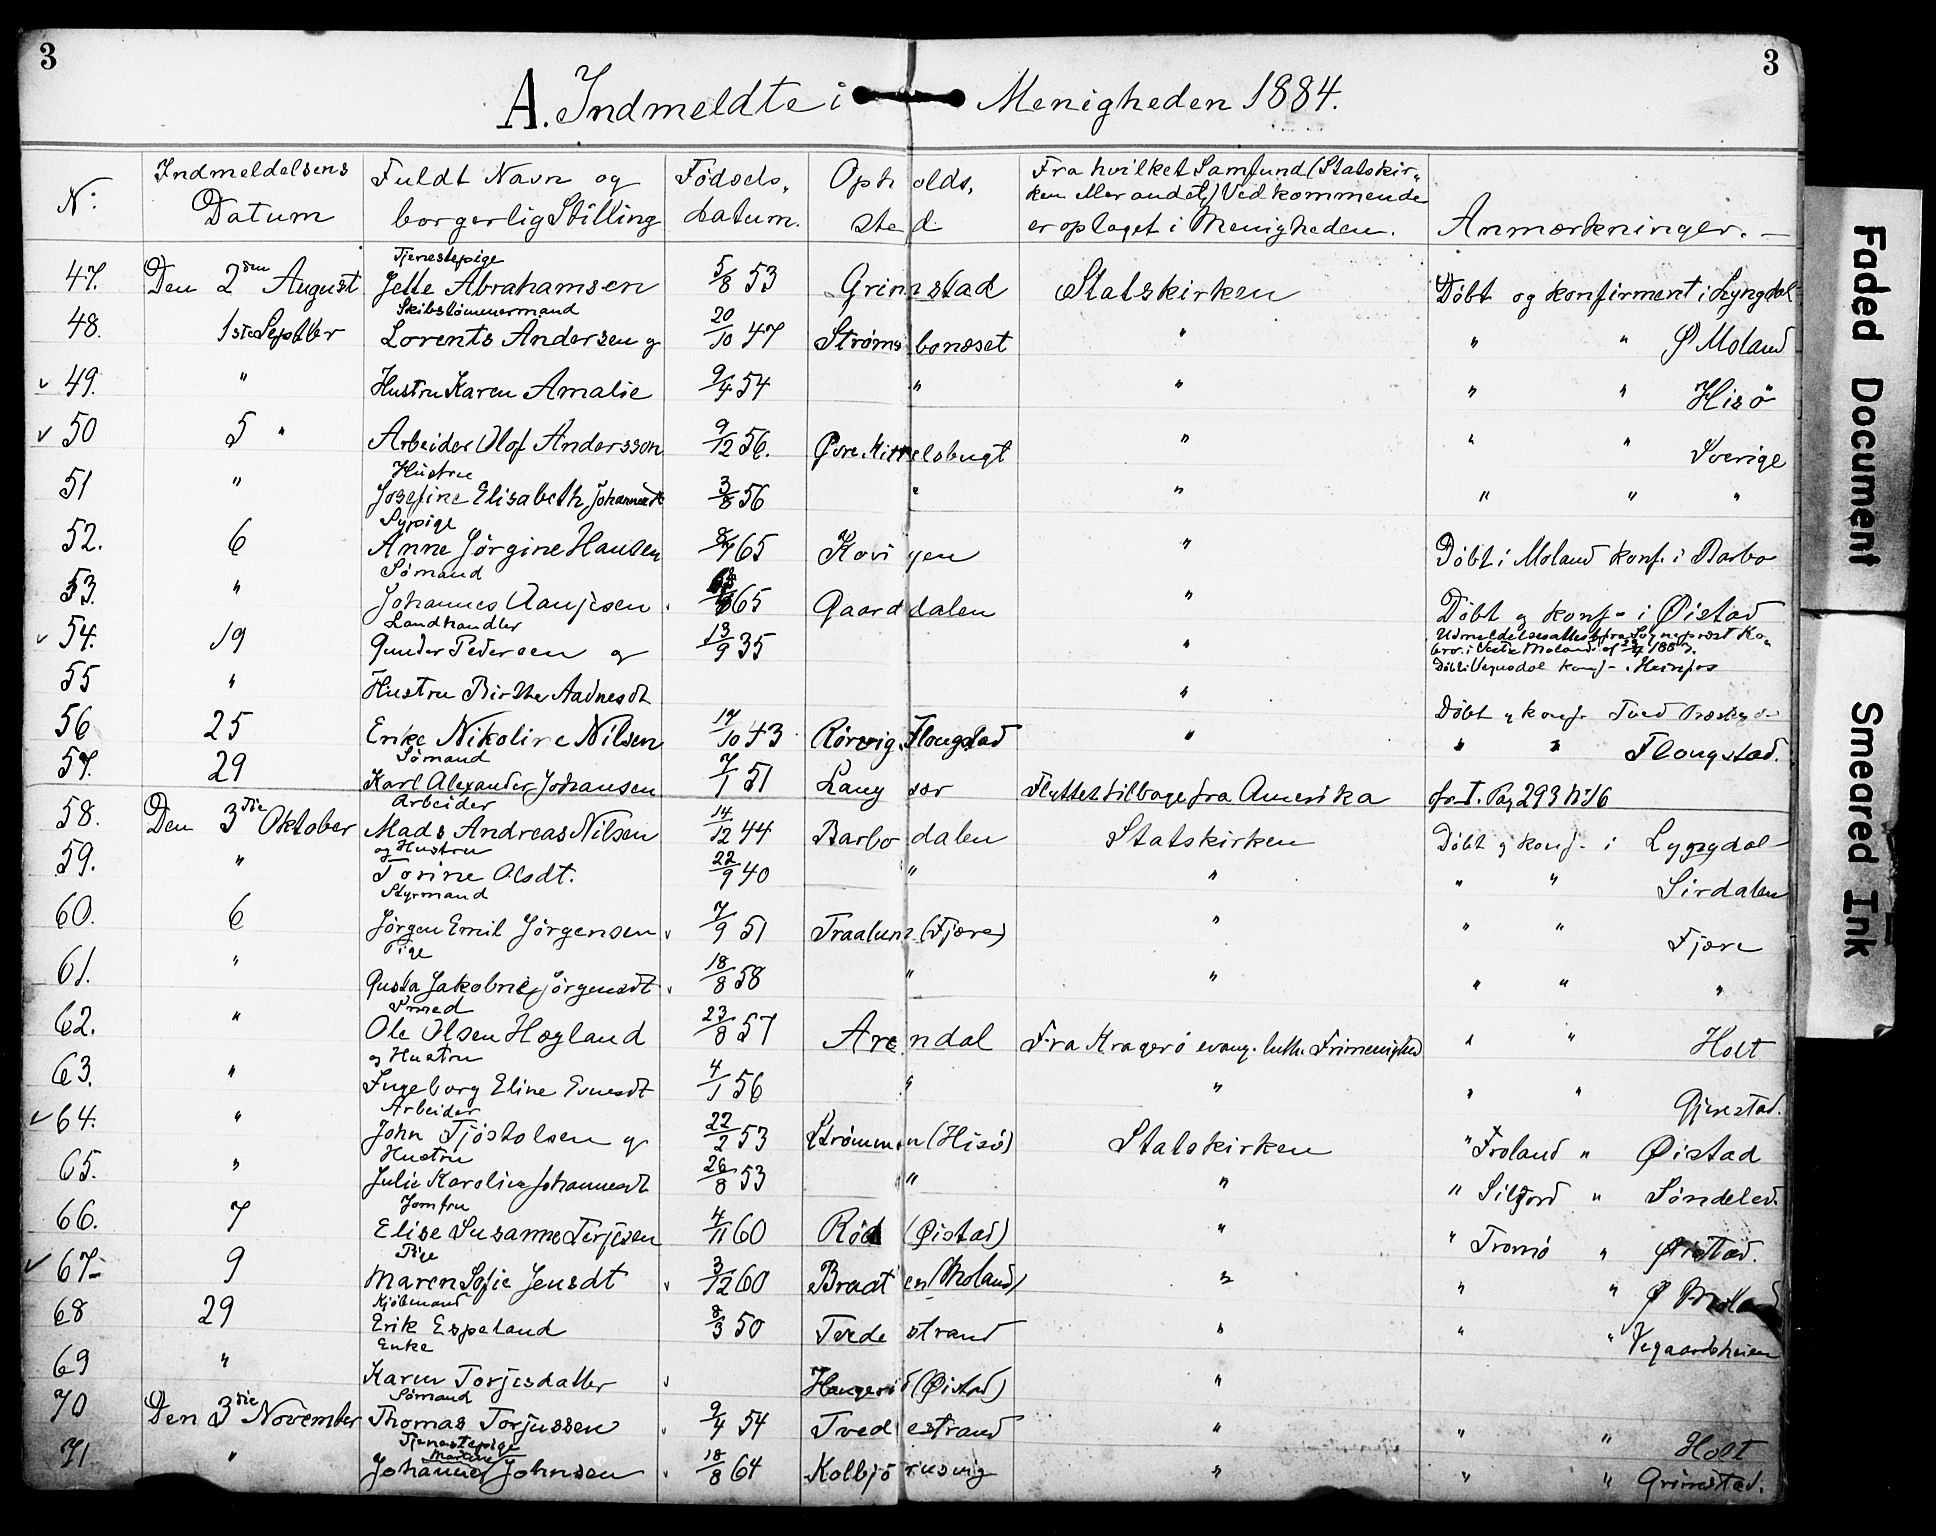 3
3
A. Indmeldte i Menigheden 1884.
No: Indmeldelsens Datum Fuldt Navn og borgerlig Stilling Fødsels, datum. Opholds, sted Fra hvilket Samfund (Statskirken eller andet) Vedkommende er optaget i Menigheden. Anmærkninger. –
Tjenestepige
47. Den 2den August Jelle Abrahamsen 5/8 53 Grimstad Statskirken Døbt og konfirment i Lyngdal
Skibstømmermand
48. 1ste Septber Lorents Andersen og 20/10 47 Strømsbonæset " " " Ø Moland
v 49. " Hustru Karen Amalie 9/4 54 " " " " Hisö
v 50 5 " Arbeider Olof Andersson 9/12 56. Øvre " " " Sverige
Hustru
51 " Josefine Elisabeth 3/8 56 " " " " "
Sypige
52. 6 Anne Jørgine Hansen 8/7 65 " Døbt i Moland konf. i Barbo
Sømand
53. " Johannes Aanjesen 65 Gaarddalen " Døbt og konf- i Øistad
Landhandler
v 54. 19 Gunder Pedersen og 13/9 35 " Udmeldelsesattest fra Sognepræst
Døbt i Vegusdal konf-
55 " Hustru Birthe Aadnesdt "
56 25 Enke Nikoline Nilsen 17/10 43 Rørvig. Flougstad " Døbt og konf. Tved
Sømand
57. 29 Karl Alexander Johansen 7/1 51 Lang sør Flyttet tilbage fra Amerika " " Flougstad.
fr. I. Pag 293 N: 16
Arbeider
58. Den 3die Oktober Mads Andreas Nilsen 14/12 44 Barbodalen Statskirken Døbt og konf- i Lyngdal
og Hustru
59. " Torine Olsdt. 22/9 40 " " " " Sirdalen
Styrmand
60. 6 Jørgen Emil Jörgensen v 7/9 51 Traalum (Fjære) " " " Fjære
Pige
61. " Gusta Jakobine Jörgensdt v 18/8 58 " " " " "
Smed
62. " Ole Olsen Hægland 23/8 57 Arendal Fra Kragerö evang. luth. Frimenighed " " Holt
og Hustru
63. " Ingeborg Eline 4/1 56 " " " " Gjerestad.
Arbeider
v 64. " John Tjöstolsen og 22/2 53 Strømmen (Hisö) Statskirken " Froland " Øistad
Hustru
65. " Julie Karoline Johannesdt 26/8 53 " " " " Söndeled.
Jomfru
66. 7 Elise Susanne Terjesen 4/11 60 Röd (Øistad) " " Tromö " Øistad.
Pige
v 67- 9 Maren Sofie Jensdt v 3/12 60 (Moland) " " " Ø Moland
Kjöbmand
68 29 Erik Espeland 8/3 50 Tvedestrand " " " Vegaardsheien
Enke
69 " Karen Torjesdatter v (Øistad) "
Sømand
70 Den 3die November Thomas Torjussen v 9/4 54 Tvedestrand " " " Holt
Tjenestepige
Marline
71. " Johanne Johnsen v 18/8 64 Kolbjörnsvig " " " Grimstad.
Faded Document
Smeared Ink